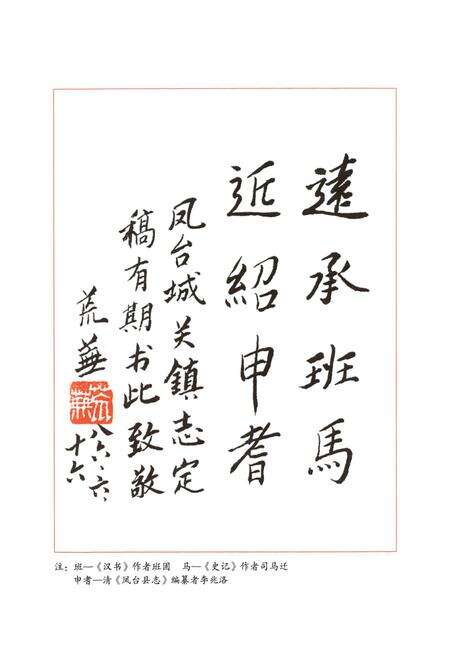 遠承班馬
近紹申耆
凤台城关鎮志定
稿有期书此致敬
荒蕪
荒蕪
八六.六.
十六
注：班—《汉书》作者班固　马—《史记》作者司马迁
申耆—清《凤台县志》编纂者李兆洛